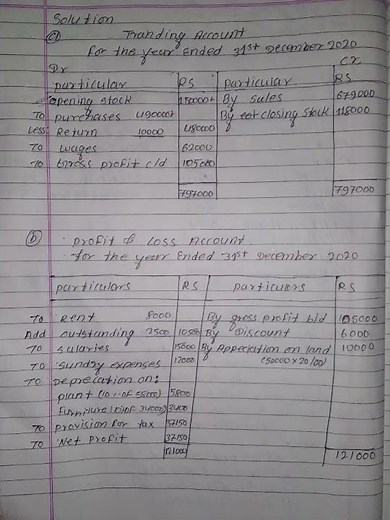 Solution
(a) Tranding Account
for the year Ended 31st December 2020
Dr Cr
particular RS particular RS
opening stock 150000 By sales 679000
To purchases 490000 By closing stock 118000
Less Return 10000 480000
To wages 62000
To Gross profit c/d 105000
797000 797000
(b) profit & Loss Account
for the year Ended 31st December 2020
particulars RS particulars RS
To Rent 8000 By gross profit b/d 105000
Add outstanding 2500 10500 By Discount 6000
To salaries 15600 By Appreciation on land 10000
To sundry expenses 12000 (50000 x 20/100)
To Depreciation on:
plant 5800
Furniture 3400
To provision for tax 37150
To Net profit 37150
121000 121000